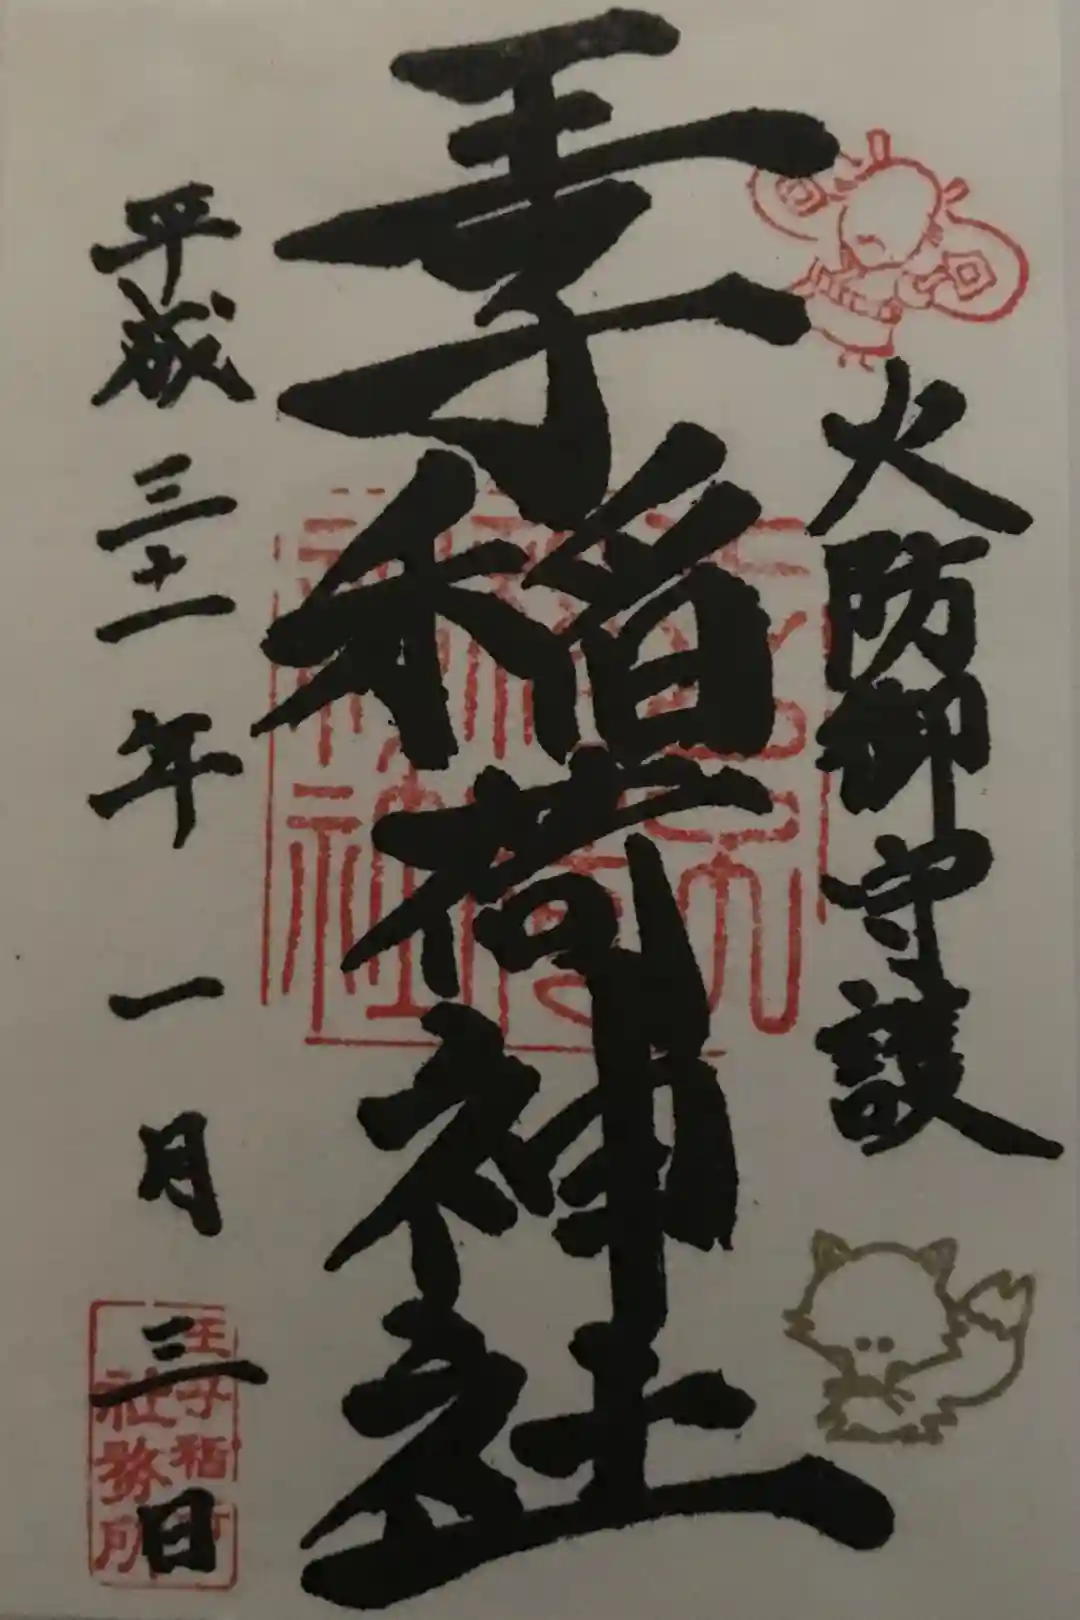 火防御守護
王子稲荷神社
平成三十一年一月三日
王子稲荷神社
王子稲荷
社務所